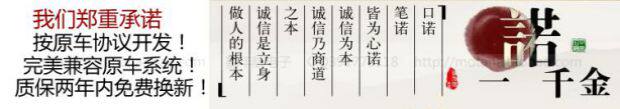 我们郑重承诺
按原车协议开发！
完美兼容原车系统！
质保两年内免费换新！
口诺
笔诺
皆为心诺
诚信为本
诚信乃商道
之本
诚信是立身
做人的根本
一諾千金